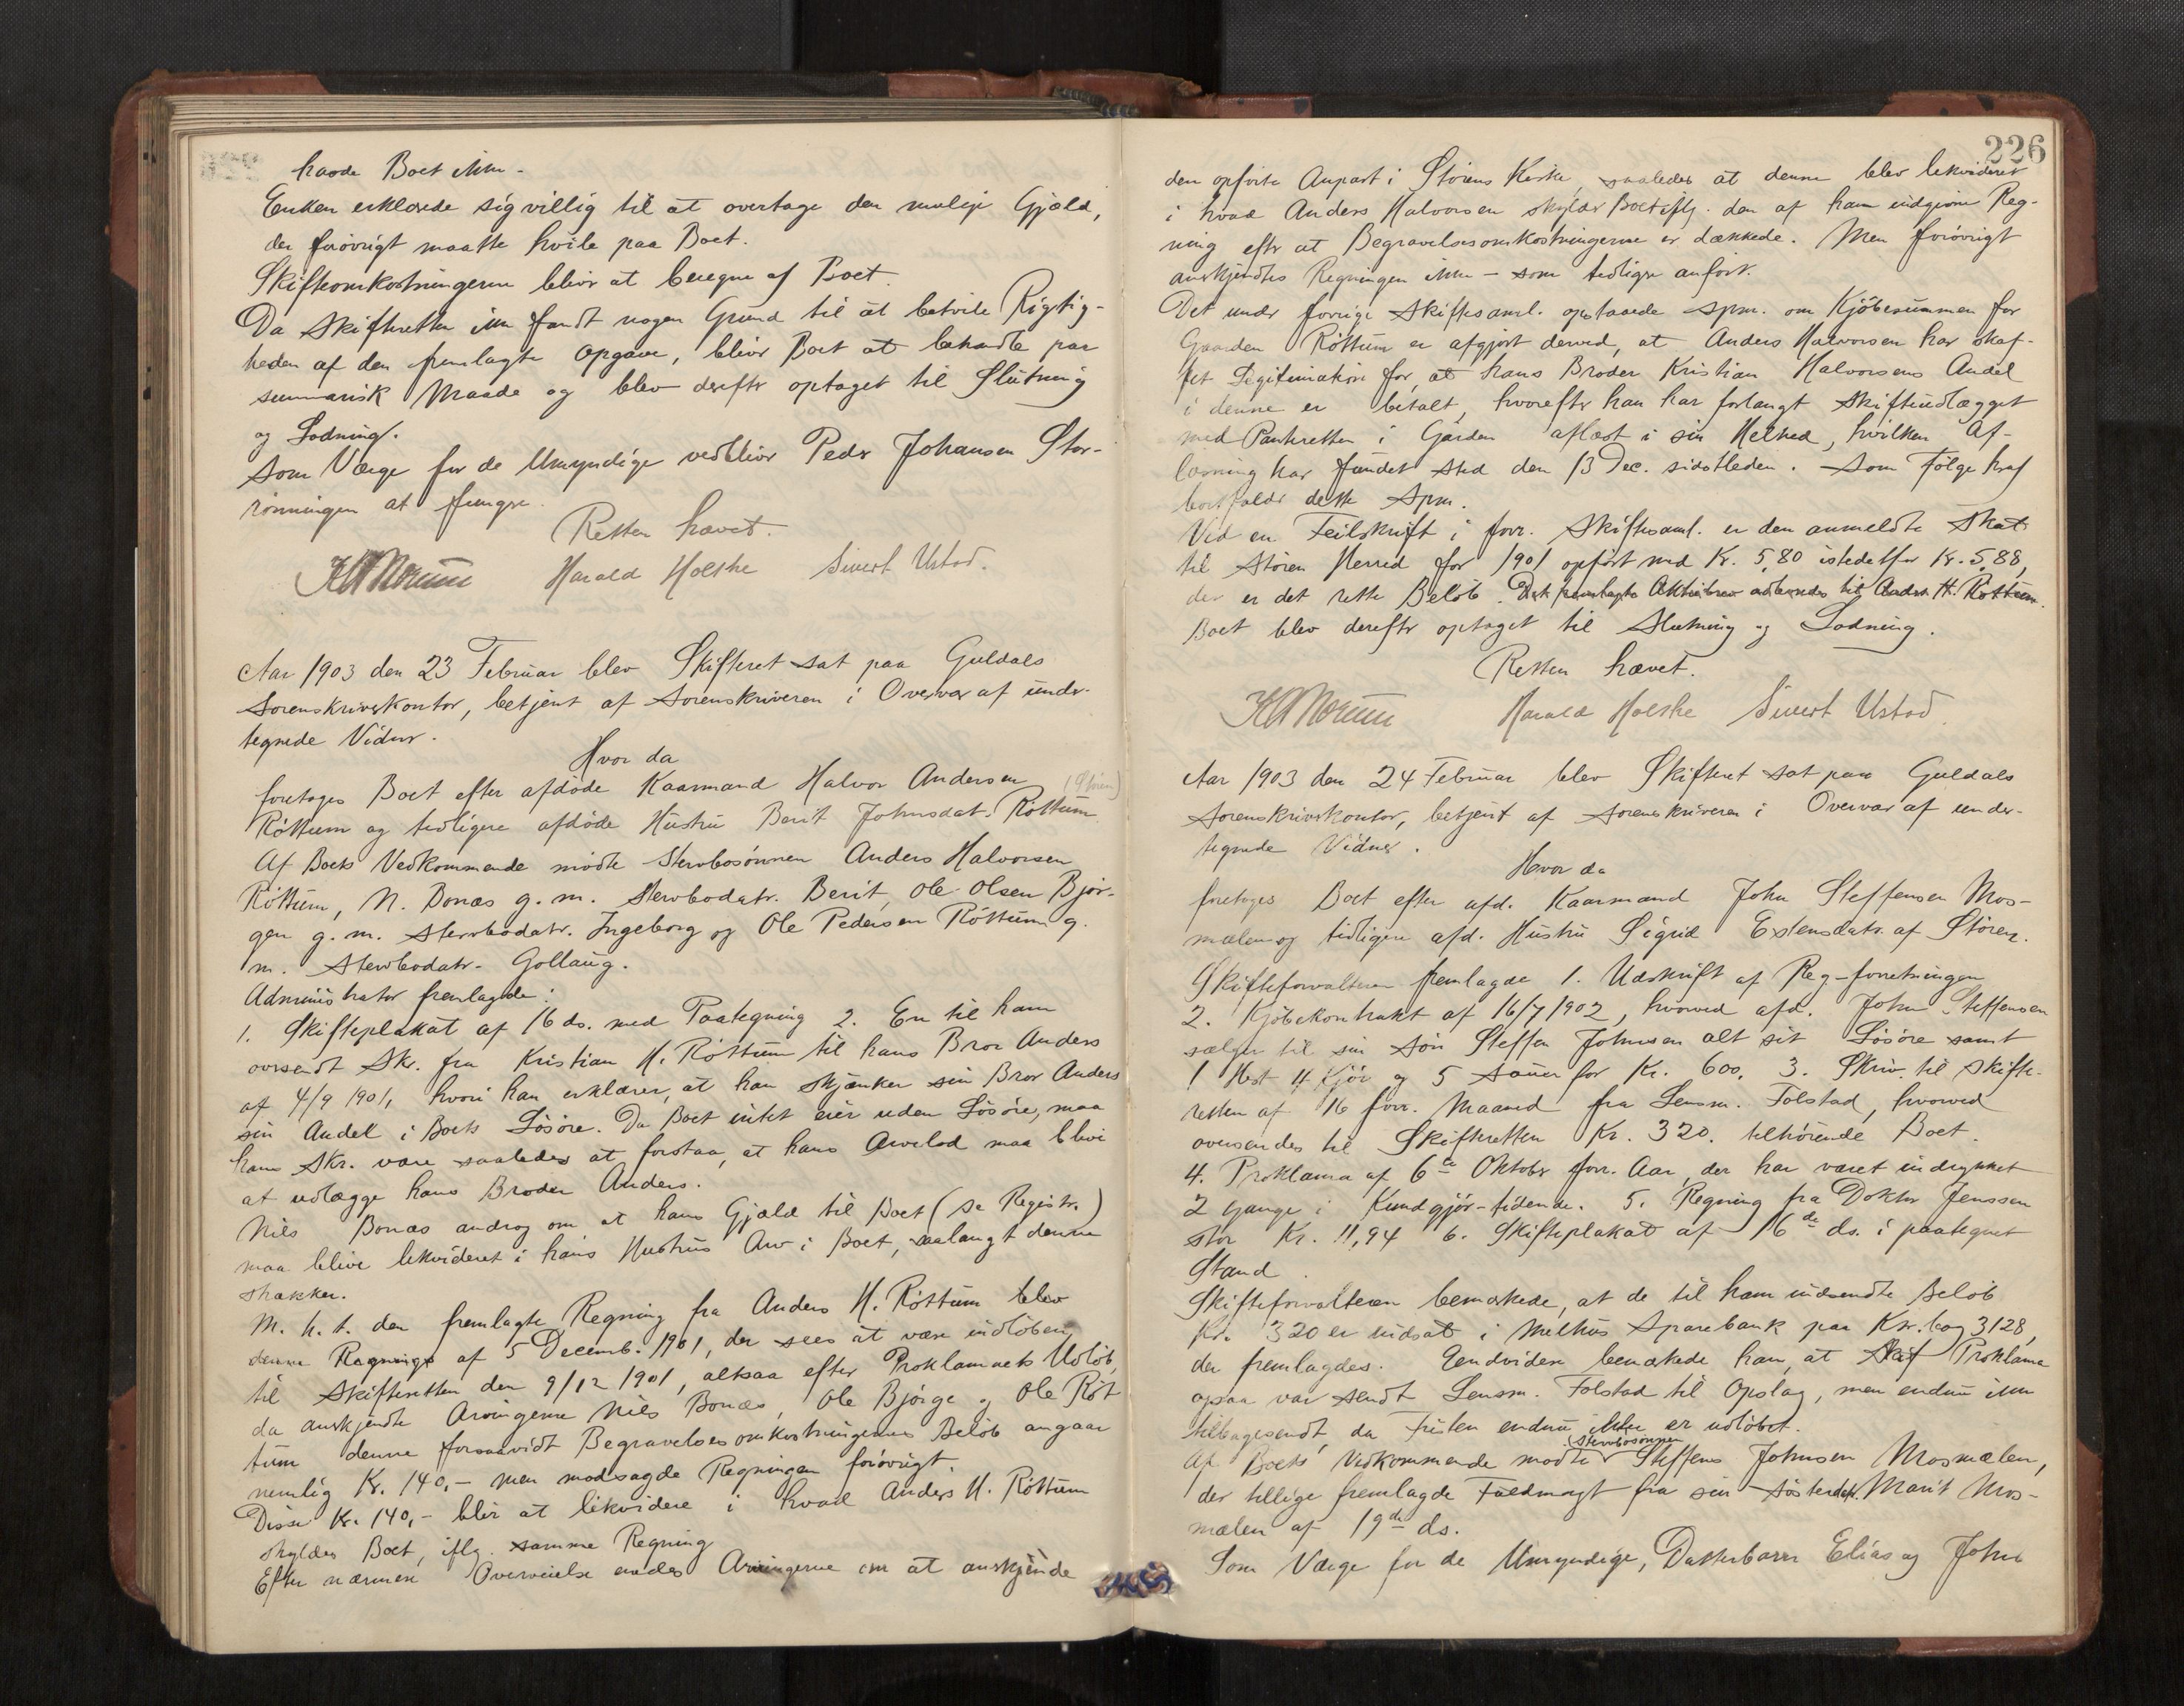 havde Boet ikke.
Enken erklærede sig villig til at overtage den mulige Gjæld,
der forøvrigt maatte hvile paa Boet.
Skifteomkostningerne bliver at beregne af Boet.
Da Skifteretten ikke fandt nogen Grund til at betvile Rigtig-
heden af den fremlagte Opgave, bliver Boet at behandle paa
summarisk Maade og blev derefter optaget til Slutning
og Lodning.
Som Værge for de Umyndige vedbliver Peder Johansen Stor-
rønningen at fungere.
Retten hævet.
Harald Holthe Sivert Ustad.
Aar 1903 den 23 Februar blev Skifteret sat paa Guldals
Sorenskriverkontor, betjent af Sorenskriveren i Overvær af under-
tegnede Vidner.
Hvor da
foretoges Boet efter afdøde Kaarmand Halvor Andersen (Støren)
Røttum og tidligere afdøde Hustru Berit Johnsdat. Røttum.
Af Boets Vedkommende mødte Stervbosønnen Anders Halvorsen
Røttum, N. Bonæs g. m. Stervbodatr. Berit, Ole Olsen Bjør-
gen g. m. Stervbodatr. Ingeborg og Ole Pedersen Røttum g.
m. Stervbodatr. Gollaug.
Administrator fremlagde:
1. Skifteplakat af 16 ds. med Paategning 2. En til ham
oversendt Skr. fra Kristian H. Røttum til hans Bror Anders
af 4/9 1901, hvori han erklærer, at han skjænker sin Bror Anders
sin Andel i Boets Løsøre. Da Boet intet eier uden Løsøre, maa
hans Skr. være saaledes at forstaa, at hans Arvelod maa blive
at udlægge hans Broder Anders.
Nils Bonæs androg om at hans Gjæld til Boet (se Registr.)
maa blive likvideret i hans Hustrus Arv i Boet, saalangt denne
strækker.
M. h. t. den fremlagte Regning fra Anders H. Røttum blev
denne Regnings af 5 Decemb. 1901, der sees at være indløben
til Skifteretten den 9/12 1901, altsaa efter Proklamaets Udløb,
da anerkjendte Arvingerne Nils Bonæs, Ole Bjørge og Ole Røt
tum denne forsaavidt Begravelsesomkostningernes Beløb angaar
nemlig Kr. 140,- men modsagde Regningen forøvrigt.
Disse Kr. 140,- blir at likvidere i hvad Anders H. Røttum
skylder Boet, iflg. samme Regning
Efter nærmere Overveielse enedes Arvingerne om at anerkjende
226
den opførte Anpart i Størens Kirke, saaledes at denne blev likvideret
i hvad Anders Halvorsen skylder Boet iflg. den af ham indgivne Reg-
ning efter at Begravelsesomkostningerne er dækkede. Men forøvrigt
anerkjendtes Regningen ikke - som tidligere anført.
Det under forrige Skiftesaml. opstaaede Spm. om Kjøbesummen for
Gaarden Røttum er afgjort derved, at Anders Halvorsen har skaf-
fet Legitimation for, at hans Broder Kristian Halvorsens Andel
i denne er betalt, hvorefter han har forlangt Skifteudlægget
med Panteretten i Gården aflæst i sin Helhed, hvilken Af-
læsning har fundet Sted den 13 Dec. sidstleden. Som Følge heraf
bortfalder dette Spm.
Ved en Feilskrift i forr. Skiftesaml. er den anmeldte Skat
til Støren Herred for 1901 opført med Kr. 5,80 istedetfor Kr. 5,88,
der er det rette Beløb. Det fremlagte Aktiebrev udlevedes til Anders H. Røttum.
Boet blev derefter optaget til Slutning og Lodning.
Retten hævet.
Harald Holthe Sivert Ustad.
Aar 1903 den 24 Februar blev Skifteret sat paa Guldals
Sorenskriverkontor, betjent af Sorenskriveren i Overvær af under-
tegnede Vidner.
Hvor da
foretoges Boet efter afd. Kaarmand John Steffensen Mos-
mælen og tidligere afd. Hustru Sigrid Estensdatr. af Støren.
Skifteforvalteren fremlagde 1. Udskrift af Reg-forretningen
2. Kjøbekontrakt af 16/7 1902, hvorved afd. John Steffensen
sælger til sin Søn Steffen Johnsen alt sit Løsøre samt
1 Hest 4 Kjør og 5 Sauer for Kr. 600. 3. Skriv. til Skifte-
retten af 16 forr. Maaned fra Lensm. Folstad, hvorved
oversendes til Skifteretten Kr. 320. tilhørende Boet.
4. Proklama af 6te Oktober forr. Aar, der har været indrykket
2 Gange i Kundgjør-tidende. 5. Regning fra Doktor Jenssen
stor Kr. 11,94 6. Skifteplakat af 16de ds. i paategnet
Stand.
Skifteforvalteren bemærkede, at de til ham indsendte Beløb
Kr. 320 er indsat i Melhus Sparebank paa Kr. bog 3128,
der fremlagdes. Endvidere bemærkede han, at Proklama
ogsaa var sendt Lensm. Folstad til Opslag, men endnu ikke
tilbagesendt, da Fristen endnu ikke er udløbet.
Af Boets Vedkommende mødte Stervbosønnen Steffens Johnsen Mosmælen,
der tillige fremlagde Fuldmagt fra sin Søster Marit Mos-
mælen af 19de ds.
Som Værge for de Umyndige, Datterbørn Elias og John